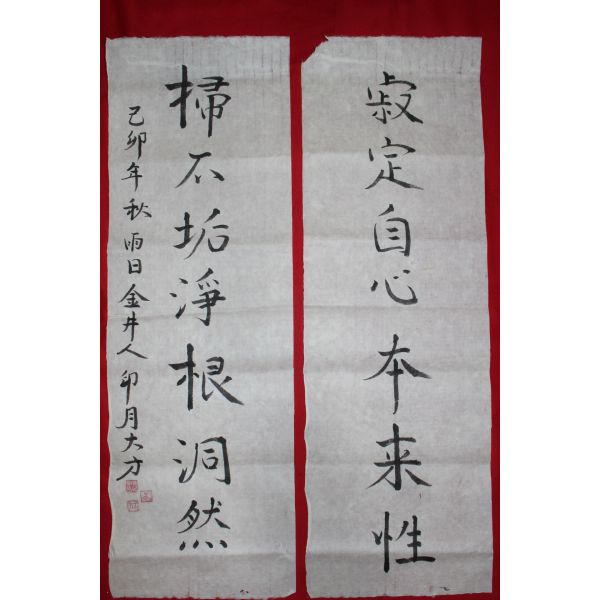 寂定自心本来性
掃不垢淨根洞然
己卯年秋雨日金井人卯月大方